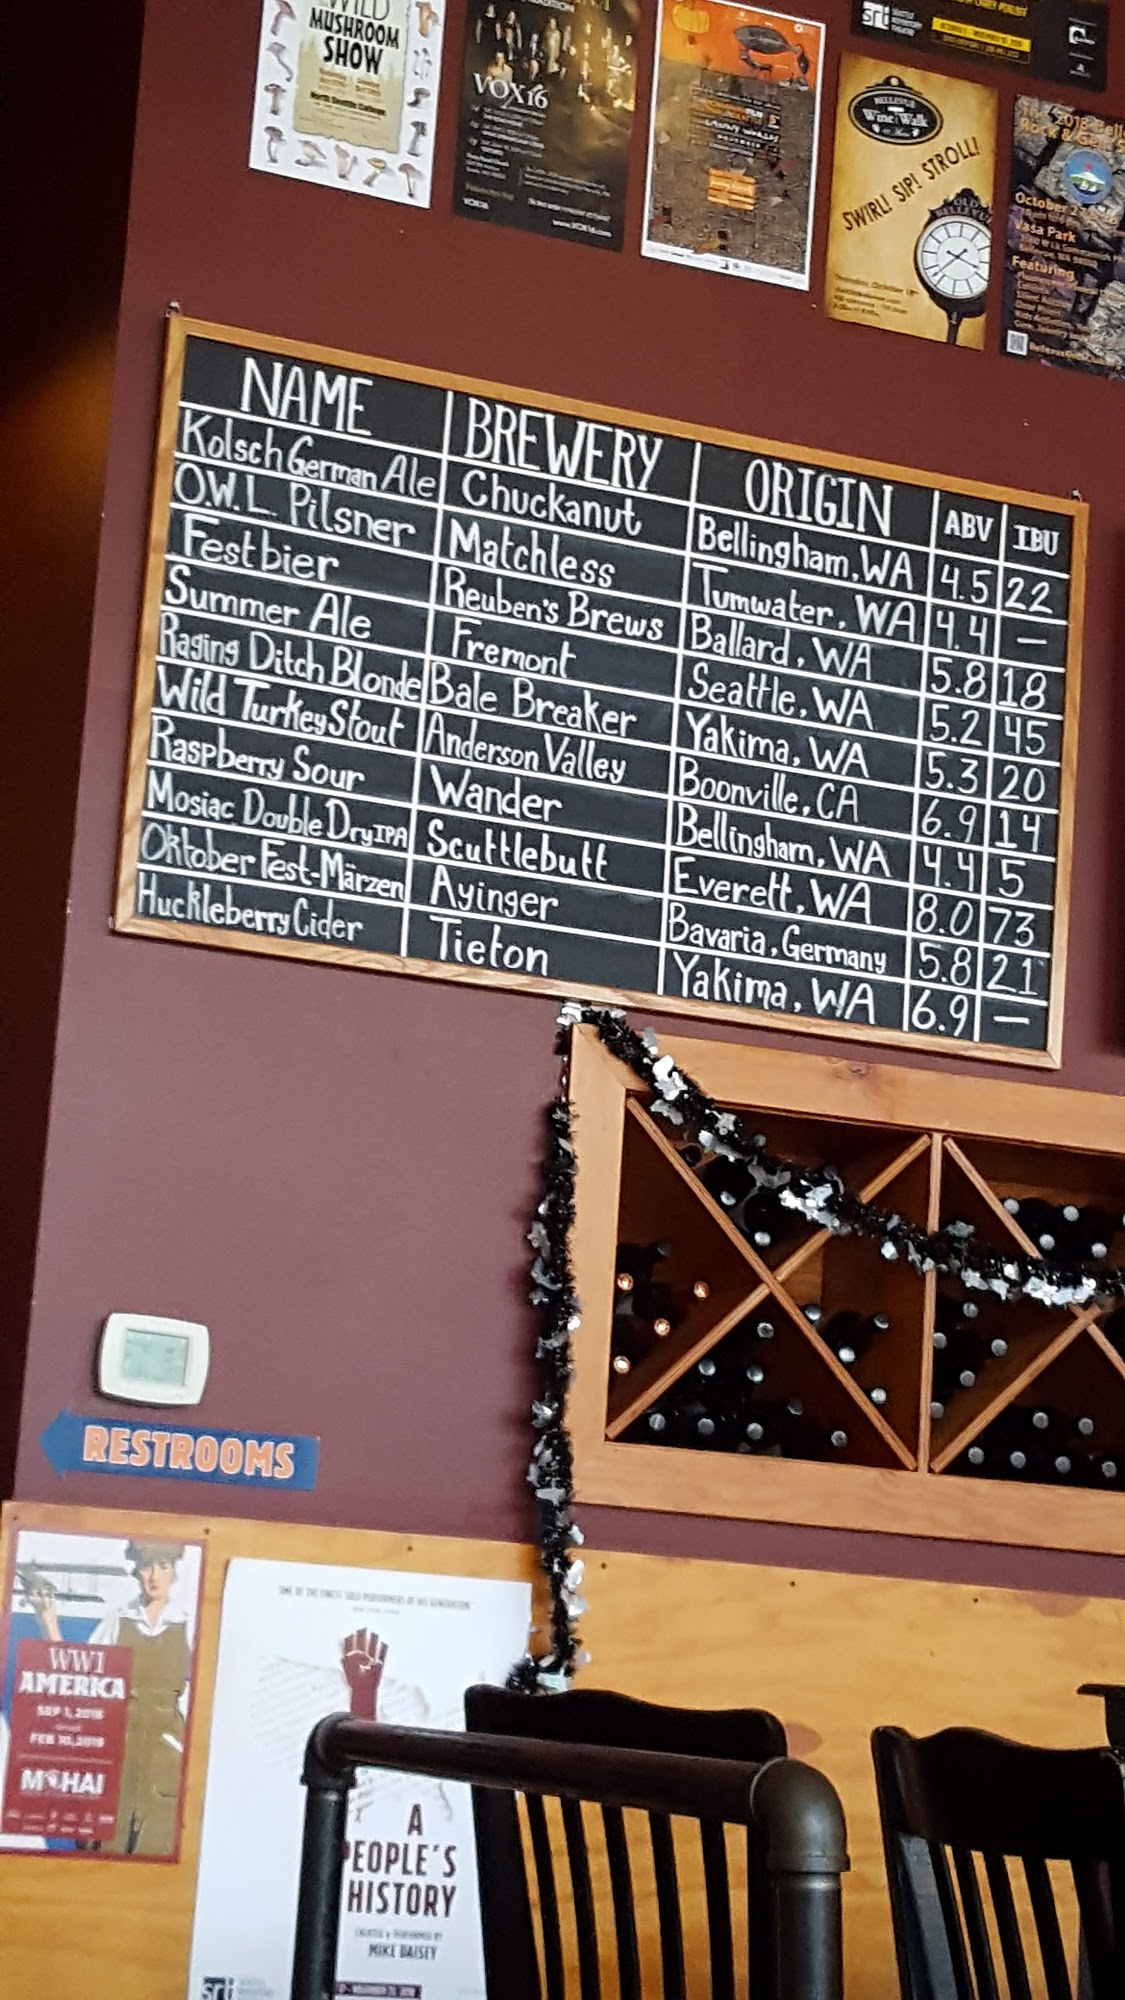 WILD
MUSHROOM
SHOW
North Seattle College
VOX16
www.VOX16.com
BELLEVUE
Wine Walk
SWIRL! SIP! STROLL!
OLD
BELLEVUE
srt
2018
Rock & Gem
October 2
Vasa Park
Featuring
NAME BREWERY ORIGIN ABV IBU
Kolsch German Ale Chuckanut Bellingham, WA 4.5 22
O.W.L. Pilsner Matchless Tumwater, WA 4.4 —
Festbier Reuben's Brews Ballard, WA 5.8 18
Summer Ale Fremont Seattle, WA 5.2 45
Raging Ditch Blonde Bale Breaker Yakima, WA 5.3 20
Wild Turkey Stout Anderson Valley Boonville, CA 6.9 14
Raspberry Sour Wander Bellingham, WA 4.4 5
Mosiac Double Dry IPA Scuttlebutt Everett, WA 8.0 73
Oktober Fest-Märzen Ayinger Bavaria, Germany 5.8 21
Huckleberry Cider Tieton Yakima, WA 6.9 —
RESTROOMS
WW1
AMERICA
SEP 1, 2018
FEB 10, 2019
MOHAI
ONE OF THE FINEST SOLO PERFORMERS OF HIS GENERATION
A
PEOPLE'S
HISTORY
CREATED & PERFORMED BY
MIKE DAISEY
srt